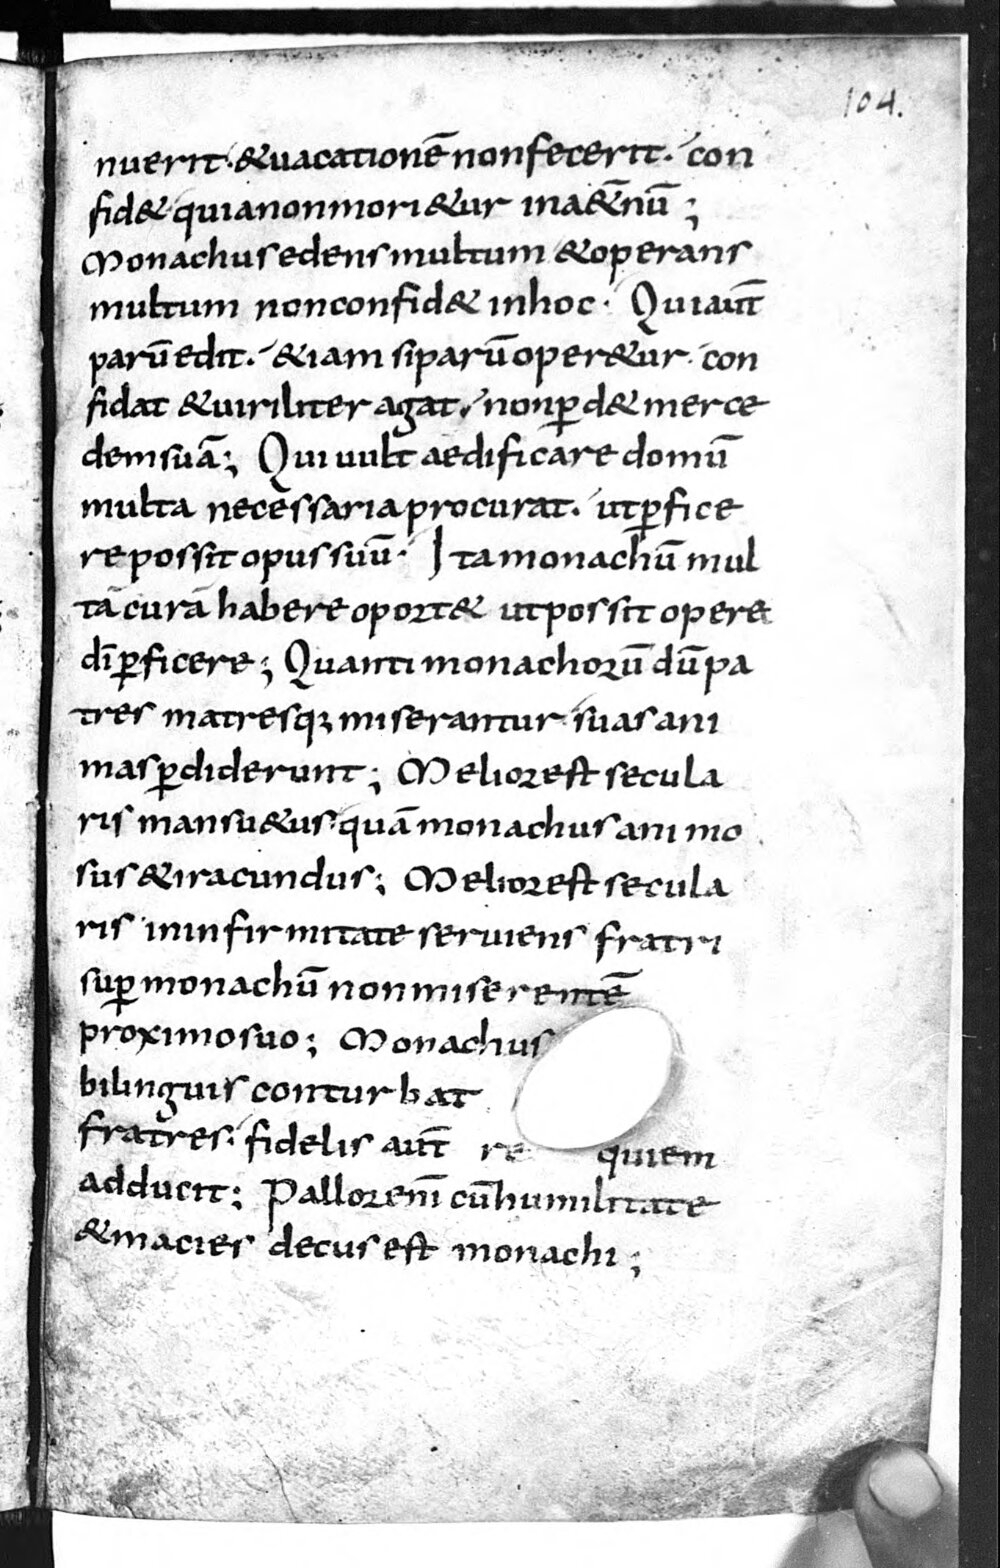 104.
nuerit· &uacationē nonfecerit· con
fid& quianonmori&ur ina&̄nū;
Monachus edens multum &operans
multum nonconfid& inhoc· Quiaut̄
parū edit· &iam siparū oper&ur· con
fidat &uiriliter agat· nonꝑd& merce
demsuā; Qui uult aedificare domū
multa necessaria procurat· utꝑfice
re possit opus suū· Ita monachū mul
tā curā habere oport& utpossit opere
dī ꝑficere; Quanti monachorū dū pa
tres matresq; miserantur suas ani
mas ꝑdiderunt; Melior est secula
ris mansu&us· quā monachus animo
sus &iracundus; Melior est secula
ris ininfirmitate seruiens fratri
suꝑ monachū nonmiserentē
proximosuo; Monachus
bilinguis conturbat
fratres· fidelis aut̄ re quiem
adducit; Pallorem̄ cū humilitate
&macies decus est monachi;